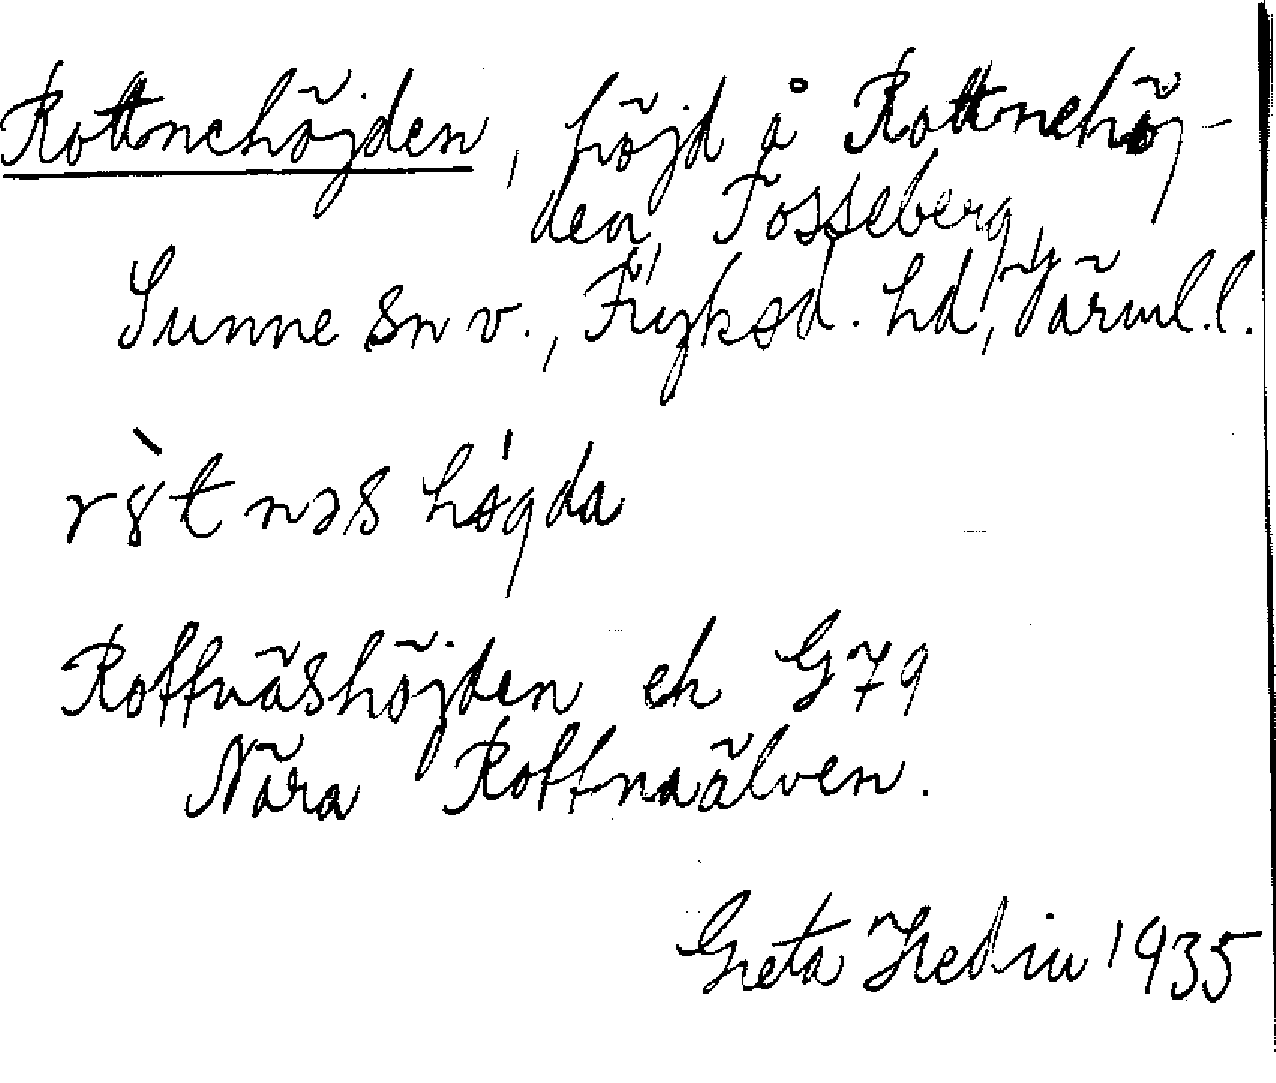 Rottnehöjden, höjd å Rottnehöj-
den, Fosseberg,
Sunne sn v., Fryksd. hd, Värml.l.
r8̀tnəs hø̍gda
Rottnäshöjden ek G79
Nära Rottnaälven.
Greta Hedin 1935